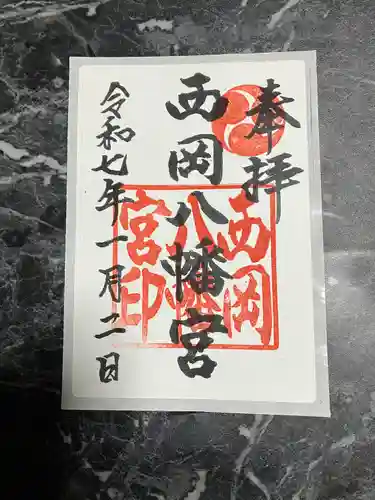 奉拝
西岡八幡宮
令和七年一月二日
西岡
八幡
宮印